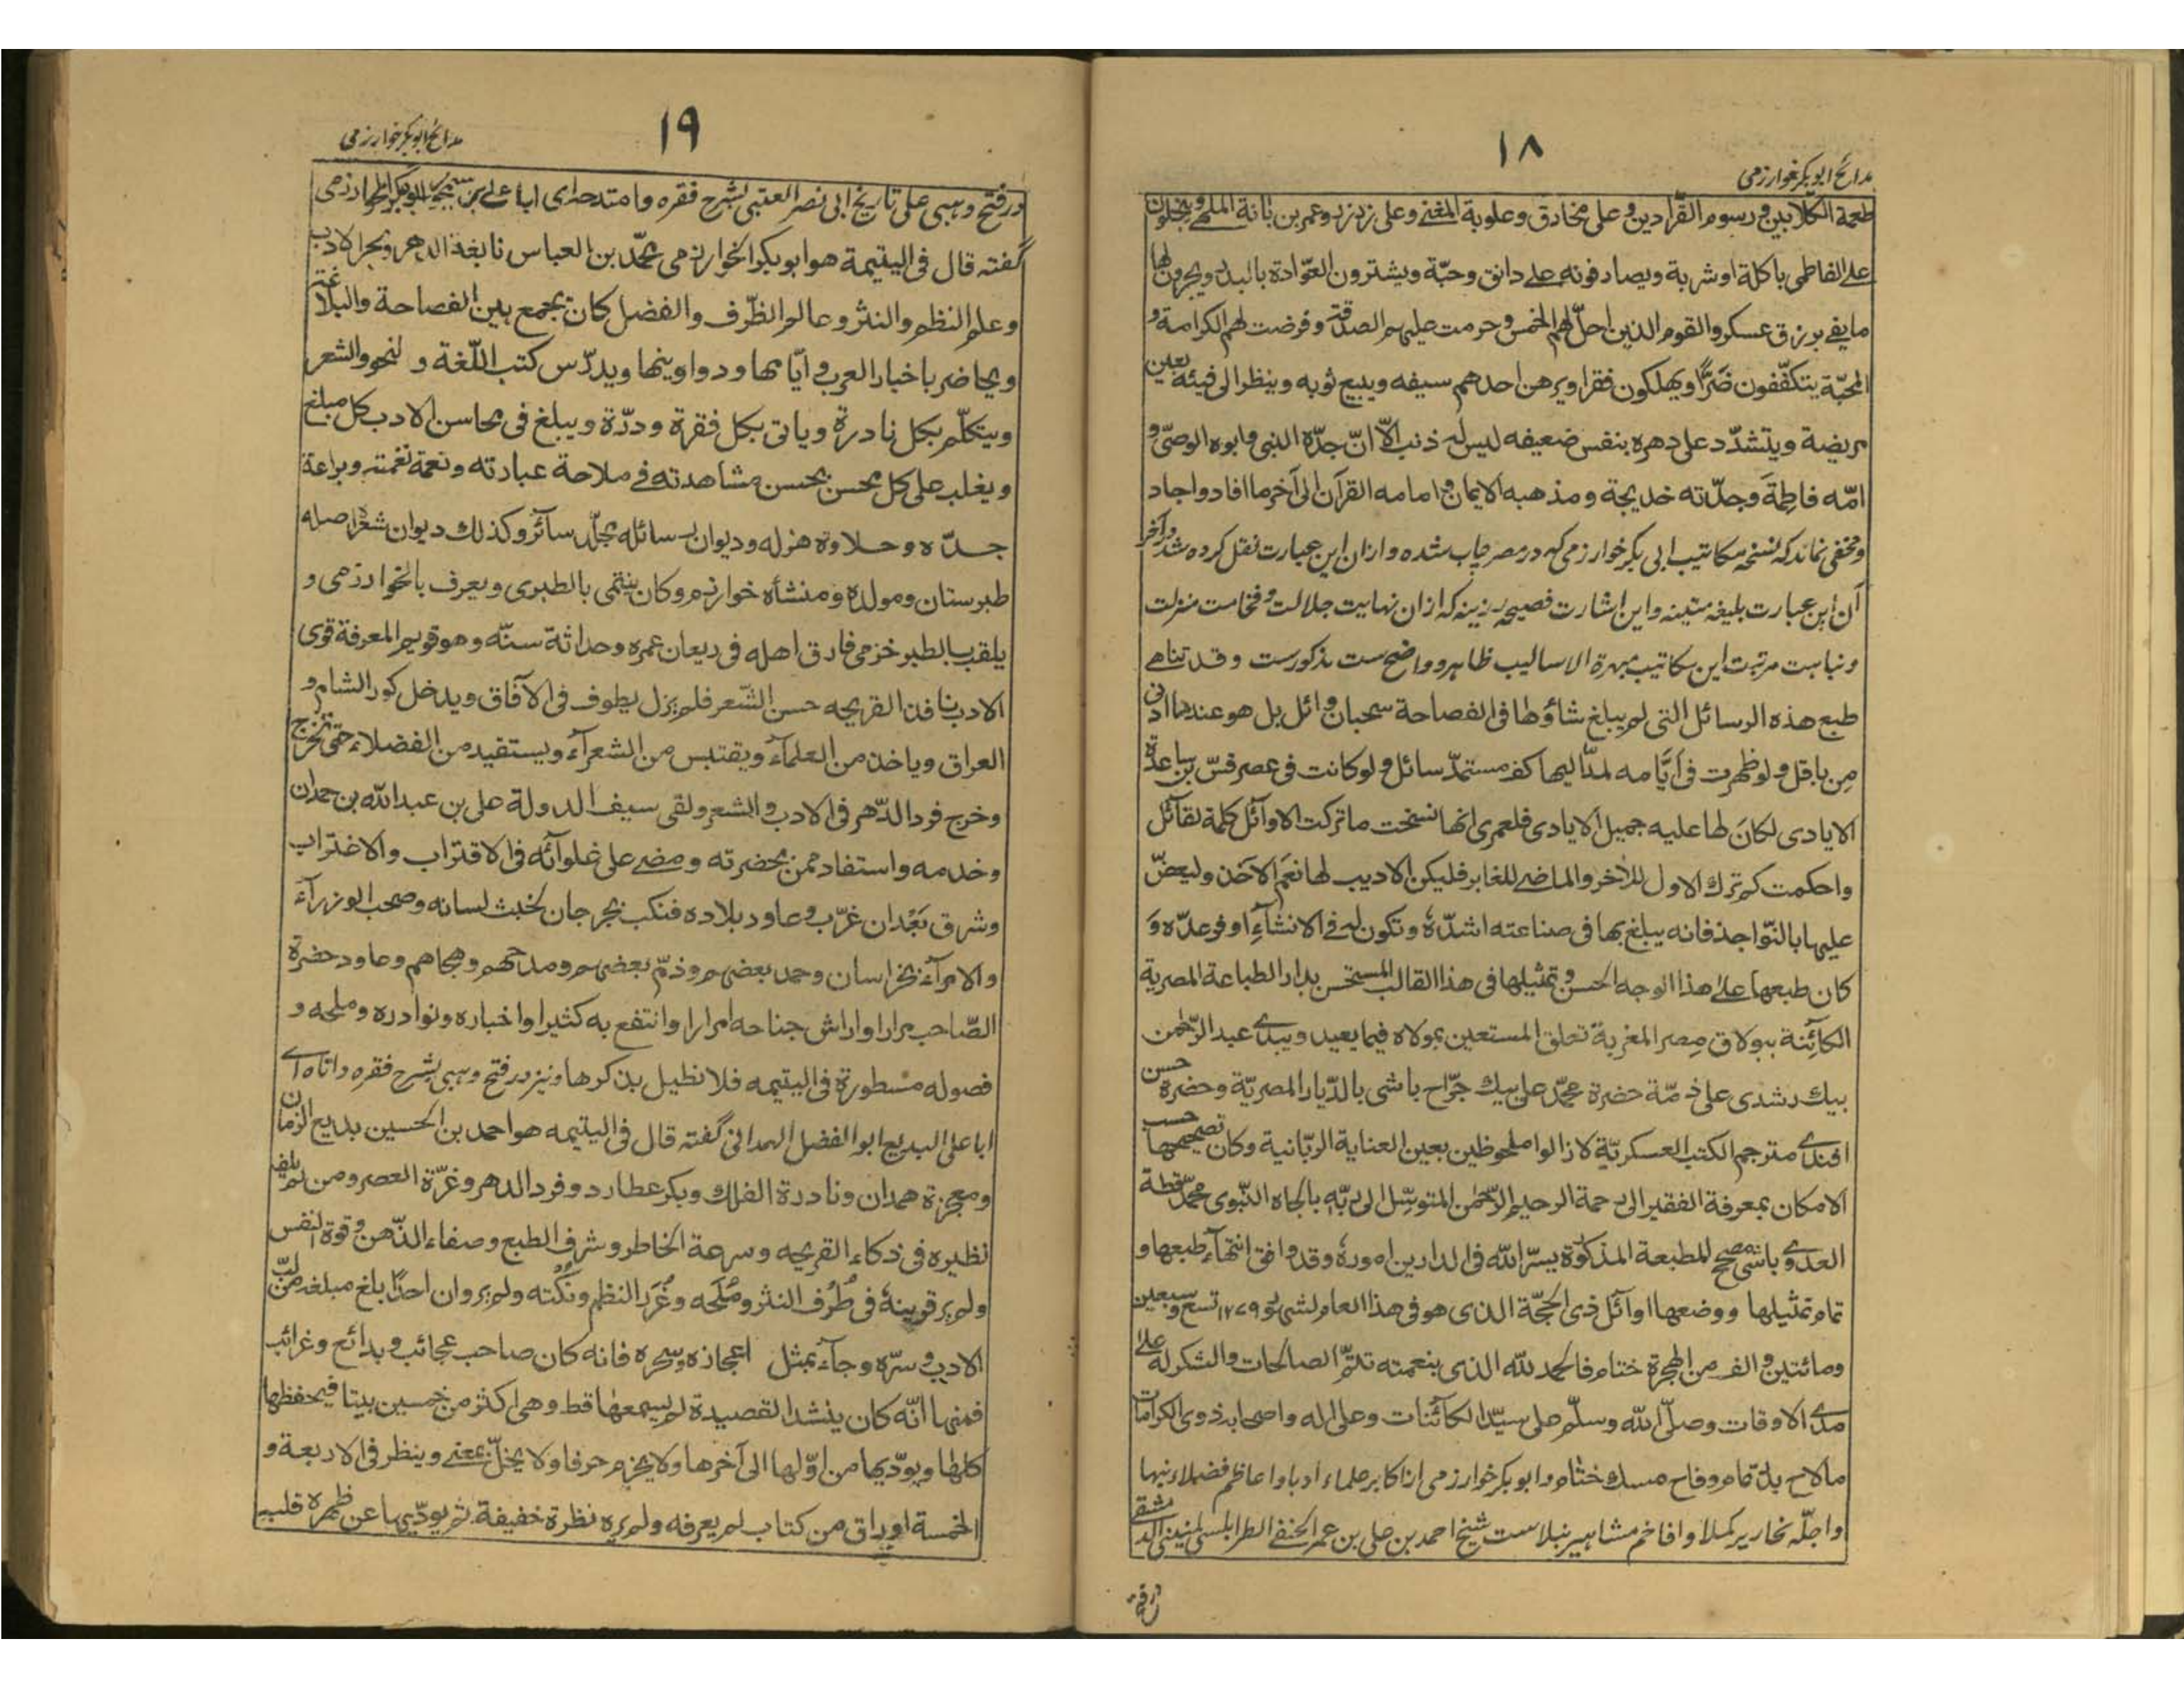 مدائح ابوبکر خوارزمی
۱۸
طعمة الکلابین و رسوم القرّادین و علی مخارق و علویة المغنے و علی زرزر و عمر بن بانة الملهے و یبخلون
علے الفاطمی باکلة او شربة و یصادفونه علے دانق و حبّة و یشترون العوّادة بالبدر و یجرون لها
ما یفے برزق عسکر و القوم الذین احلّ لهم الخمس و حرمت علیهم الصدقة و فرضت لهم الکرامة و
المحبّة یتکفّفون ضَرًّا و یهلکون فقرا و یرهن احدهم سیفه و یبیع ثوبه و ینظر الی فیئه بعین
مریضة و یتشدّد علی دهره بنفس ضعیفه لیس له ذنب الّا انّ جدّه النبی و ابوه الوصیّ و
امّه فاطِمَة و جدّته خدیجة و مذهبه الایمان و امامه القرآن الی آخر ما افاد و اجاد
و مخفی نماند که نسخهٔ مکاتیب ابی بکر خوارزمی که در مصر چاپ شده و ازان این عبارت نقل کرده شد در آخر
آن این عبارت بلیغه متینه و این اشارت فصیحه رزینه که ازان نهایت جلالت و فخامت منزلت
و نباهت مرتبت این مکاتیب مبهرة الاسالیب ظاهر و واضح ست مذکورست و قد تناهے
طبع هذه الرسائل التی لم یبلغ شاؤها فی الفصاحة سحبان وائل بل هو عندها ادنی
مِن باقل و لو ظهرت فی اَیَّامه لمدّ الیها کف مستمدّ سائل و لو کانت فی عصر قسّ بن ساعدة
الایادی لکانَ لها علیه جمیل الایادی فلعمری انها نسخت ما ترکت الاوآئل کلمة لقآئل
و احکمت کم ترک الاول للآخر و الماضے للغابر فلیکن الادیب لها نعَم الآخذ و لیعضّ
علیها بالنّواجذ فانه یبلغ بها فی صناعته اشدّهٗ و تکون له فے الانشآءِ اوفر عدّه وَ
کان طبعها علےٰ هذا الوجه الحسن و تمثیلها فی هذا القالب المستحسن بدار الطباعة المصریة
الکآئِنة ببولاق مِصر المغربة تعلق المستعین بمولاه فیما یعید و یبدے عبد الرّحمٰن
بیک رشدی علی ذمّة حضرة محمّد علی بیک جرّاح باشی بالدّیار المصریّة و حضرة حسن
افندے مترجم الکتب العسکریّة لا زالوا ملحوظین بعین العنایة الربّانیة و کان تصحیحها حسب
الامکان بمعرفة الفقیر الی رحمة الرحیم الرّحمٰن المتوسّل الی ربّه بالجاه النّبوی محمّد قطة
العدوے باشمصحح المطبعة المذکورة یسّر الله فی الدارین امورهٗ و قد وافق انتهآء طبعها و
تمام تمثیلها و وضعها اوآئل ذی الحجّة الذی هو فی هذا العام لشهور ۱۲۷۹ تسع و سبعین
و مائتین و الف من الهجرة ختام فالحمد للّه الذی بنعمته تتمّ الصالحات و الشکر له علےٰ
مدے الاوقات و صلّی الله و سلّم علی سیّد الکآئنات و علی اٰله و اصحابه ذوی الکرامات
ما لاح بدر تمام و فاح مسک ختام و ابوبکر خوارزمی از اکابر علماء ادبا و اعاظم فضلاء نبها
و اجلّهٔ نحاریر کملا و افاخم مشاهیر نبلاست شیخ احمد بن علی بن عمر الحنفے الطرابلسی المنینی الدمشقی
در فتح
مدائح ابوبکر خوارزمی
۱۹
در فتح وهبی علی تاریخ ابی نصر العتبی بشرح فقره و امتدحه ای ابا علے بن سیمجور ابوبکر الخوارزمی
گفته قال فی الیتیمة هو ابوبکر الخوارزمی محمّد بن العباس نابغة الدهر و بحر الادب
و علم النظم و النثر و عالم الظّرف و الفضل کان یجمع بین الفصاحة و البلاغة
و یحاضر باخبار العرب و ایّامها و دواوینها و یدرّس کتب اللّغة و النحو و الشعر
و یتکلّم بکل نادرة و یاتی بکل فقرة و درّة و یبلغ فی محاسن الادب کل مبلغ
و یغلب علی کل محسن بحسن مشاهدته فے ملاحة عبارته و نعمة نغمته و براعة
جدّه و حلاوة هزله و دیوان رسائله مجلّد سآئر و کذلک دیوان شعره اصله
طبرستان و مولده و منشأه خوارزم و کان ینتمی بالطبری و یعرف بالخوارزمی و
یلقب بالطبرخزمی فارق اهله فی ریعان عمره و حداثة سنّه و هو قویم المعرفة قوی
الادب نافذ القریحه حسن الشّعر فلم یزل یطوف فی الآفاق و یدخل کور الشام و
العراق و یاخذ من العلمآء و یقتبس من الشعرآء و یستفید من الفضلاء حتی تخرج
و خرج فرد الدّهر فی الادب و الشعر و لقی سیف الدولة علی بن عبد الله بن حمدان
و خدمه و استفاد ممن بحضرته و مضے علی غلوآئه فی الاقتراب و الاغتراب
و شرق بَعْد ان غرّب و عاود بلاده فنکب بجرجان لخبث لسانه و صحب الوزرآء
و الامرآء بخراسان و حمد بعضهم و ذمّ بعضهم و مدحهم و هجاهم و عاود حضرة
الصّاحب مرارا و اراش جناحه امرارا و انتفع به کثیرا و اخباره و نوادره و ملحه و
فصوله مسطورة فی الیتیمه فلا نطیل بذکرها و نیز در فتح وهبی بشرح فقره و اتاه اے
ابا علی البدیع ابو الفضل الهمدانی گفته قال فی الیتیمه هو احمد بن الحسین بدیع الزمان
و معجزة همدان و نادرة الفلک و بکر عطارد و فرد الدهر و غرّة العصر و من لم یلف
نظیره فی ذکاء القریحه و سرعة الخاطر و شرف الطبع و صفاء الذّهن و قوة النفس
و لم یر قرینهٗ فی طُرَف النثر و مُلَحه و غُرَر النظم و نُکَته و لم یر و ان احدًا بلغ مبلغه من لبّ
الادب و سرّه و جآء بمثل اعجازه و سحره فانه کان صاحب عجائب و بدائع و غرائب
فمنها انّه کان ینشد القصیدة لم یسمعها قط و هی اکثر من خمسین بیتا فیحفظها
کلها و یودّیها من اوّلها الی آخرها و لا یخرم حرفا و لا یخلّ بمعنے و ینظر فی الاربعة و
الخمسة اوراق من کتاب لم یعرفه و لم یره نظرة خفیفة ثم یودّیها عن ظهر قلبه